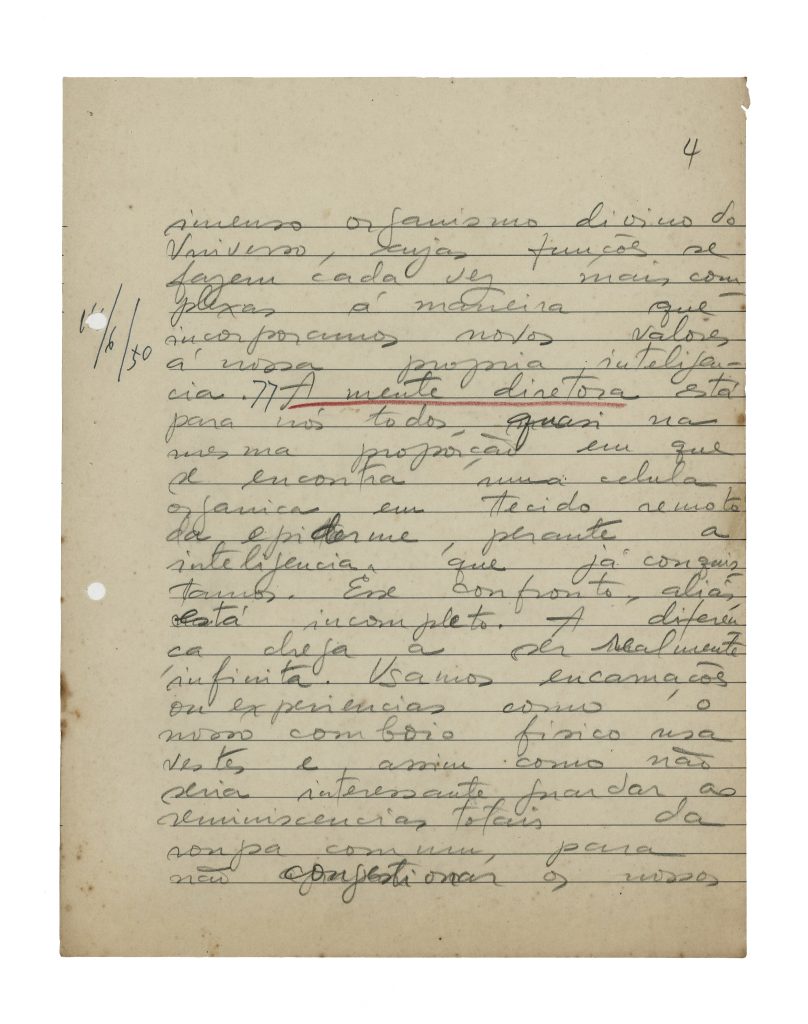 4
imenso organismo divino do
Universo, cujas funcões se
fazem cada vez mais com
plexas á maneira que
incorporamos novos valores
á nossa propria inteligen-
cia. A mente diretora está
para nós todos, quasi na
mesma proporção em que
se encontra uma celula
organica em tecido remoto
da epiderme, perante a
inteligencia, que já conquis
tamos. Esse confronto, aliás,
está incompleto. A diferen
ca chega a ser realmente
infinita. Usamos encarnações
ou experiencias como o
nosso comboio fisico usa
vestes e, assim como não
seria interessante guardar as
reminiscencias totais da
roupa comum, para
não congestionar os nossos